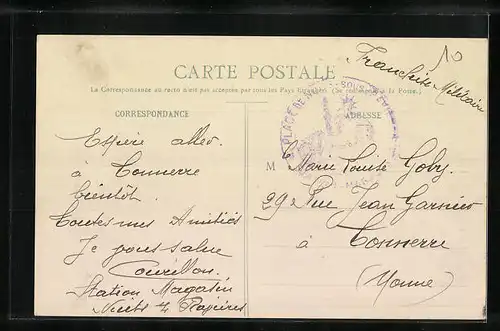 10
Franchise Militaire
CARTE POSTALE
La Correspondance au recto n'est pas acceptée par tous les Pays Étrangers (Se renseigner à la Poste.)
PLACE DE
CORRESPONDANCE
ADRESSE
Espère aller
à Tonnerre
bientôt.
Toutes mes Amitiés
Je vous salue
Station Magasin
Nuits
M Marie Goby
29 Rue Jean Garnier
à Tonnerre
(Yonne)